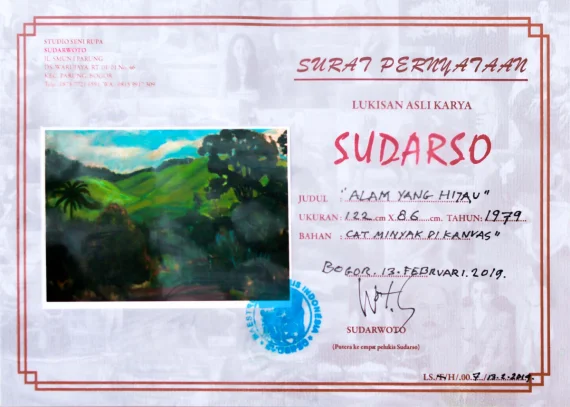 STUDIO SENI RUPA
SUDARWOTO
SURAT PERNYATAAN
LUKISAN ASLI KARYA
SUDARSO
JUDUL : "ALAM YANG HIJAU"
UKURAN : 122 cm X 86 cm. TAHUN: 1979
BAHAN : CAT MINYAK DI KANVAS"
BOGOR, 13 FEBRUARI 2019.
SUDARWOTO
(Putera ke empat pelukis Sudarso)
INDONESIA